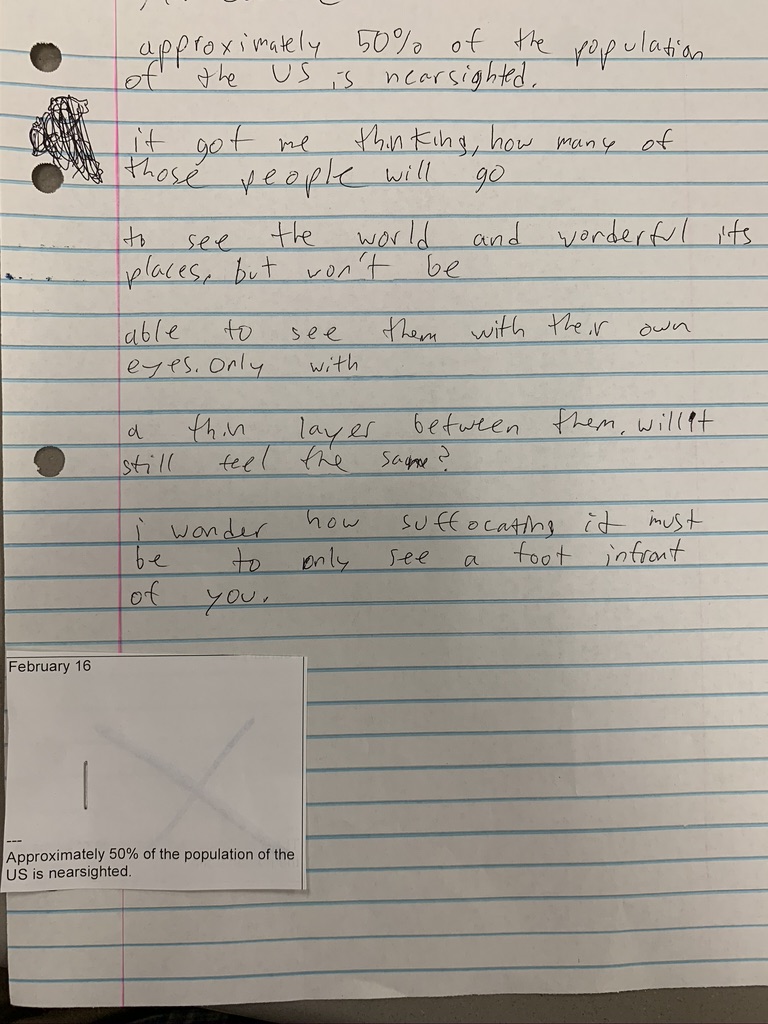 approximately 50% of the population
of the US is nearsighted.
it got me thinking, how many of
those people will go
to see the world and wonderful its
places, but won't be
able to see them with their own
eyes. Only with
a thin layer between them, will it
still feel the same?
i wonder how suffocating it must
be to only see a foot infront
of you.
February 16
---
Approximately 50% of the population of the
US is nearsighted.